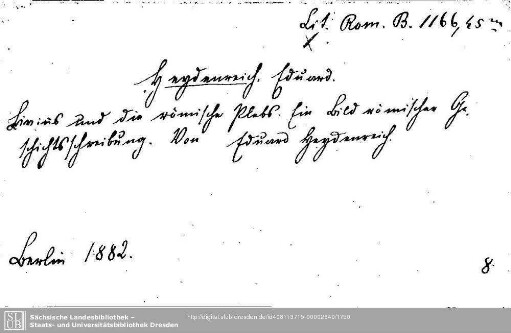 Lit. Rom. B. 1166, 45 m
Heydenreich. Eduard.
Livius und die römische Plebs. Ein Bild römischer Ge-
schichtsschreibung. Von Eduard Heydenreich.
Berlin 1882.
8.
SLUB
Sächsische Landesbibliothek –
Staats- und Universitätsbibliothek Dresden